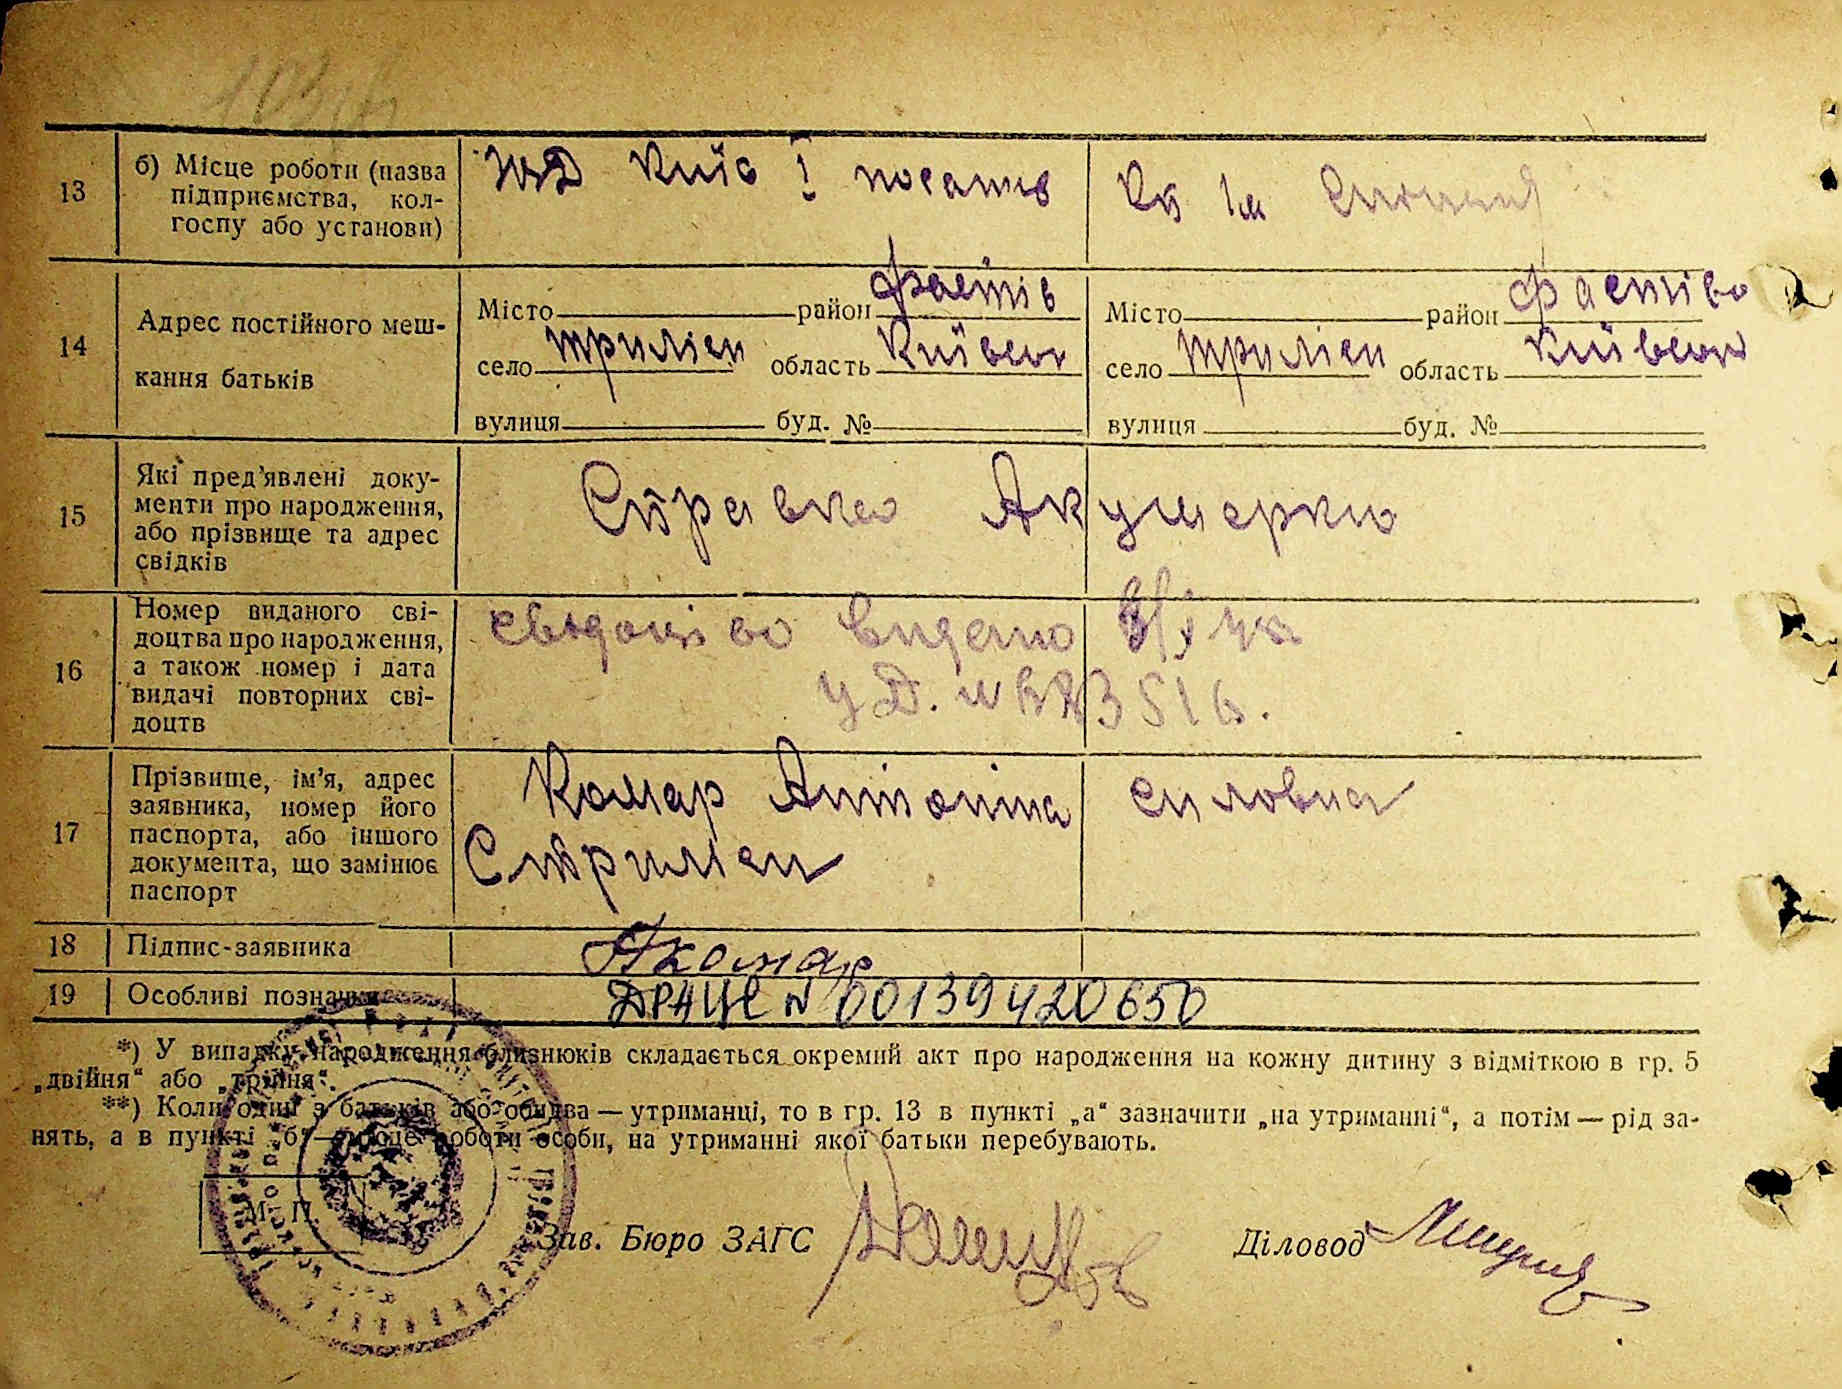 13
б) Місце роботи (назва
підприємства, кол-
госпу або установи)
ЖД Київ І
Кк ім
14
Адрес постійного меш-
кання батьків
Місто район Фастів
село Триліси область Київськ
вулиця буд. №
Місто район Фастівс
село Триліси область Київськ
вулиця буд. №
15
Які пред'явлені доку-
менти про народження,
або прізвище та адрес
свідків
Справка Акушерки
16
Номер виданого сві-
доцтва про народження,
а також номер і дата
видачі повторних сві-
доцтв
видано
17
Прізвище, ім'я, адрес
заявника, номер його
паспорта, або іншого
документа, що замінює
паспорт
Комар Антоніна Силовна
С Триліси
18
Підпис-заявника
АКомар
19
Особливі позначки
ДРАЦС N 00139420650
*) У випадку народження близнюків складається окремий акт про народження на кожну дитину з відміткою в гр. 5
„двійня“ або „трійня“.
**) Коли один з батьків або обидва — утриманці, то в гр. 13 в пункті „а“ зазначити „на утриманні“, а потім — рід за-
нять, а в пункті „б“ — місце роботи особи, на утриманні якої батьки перебувають.
М. П.
Зав. Бюро ЗАГС
Діловод